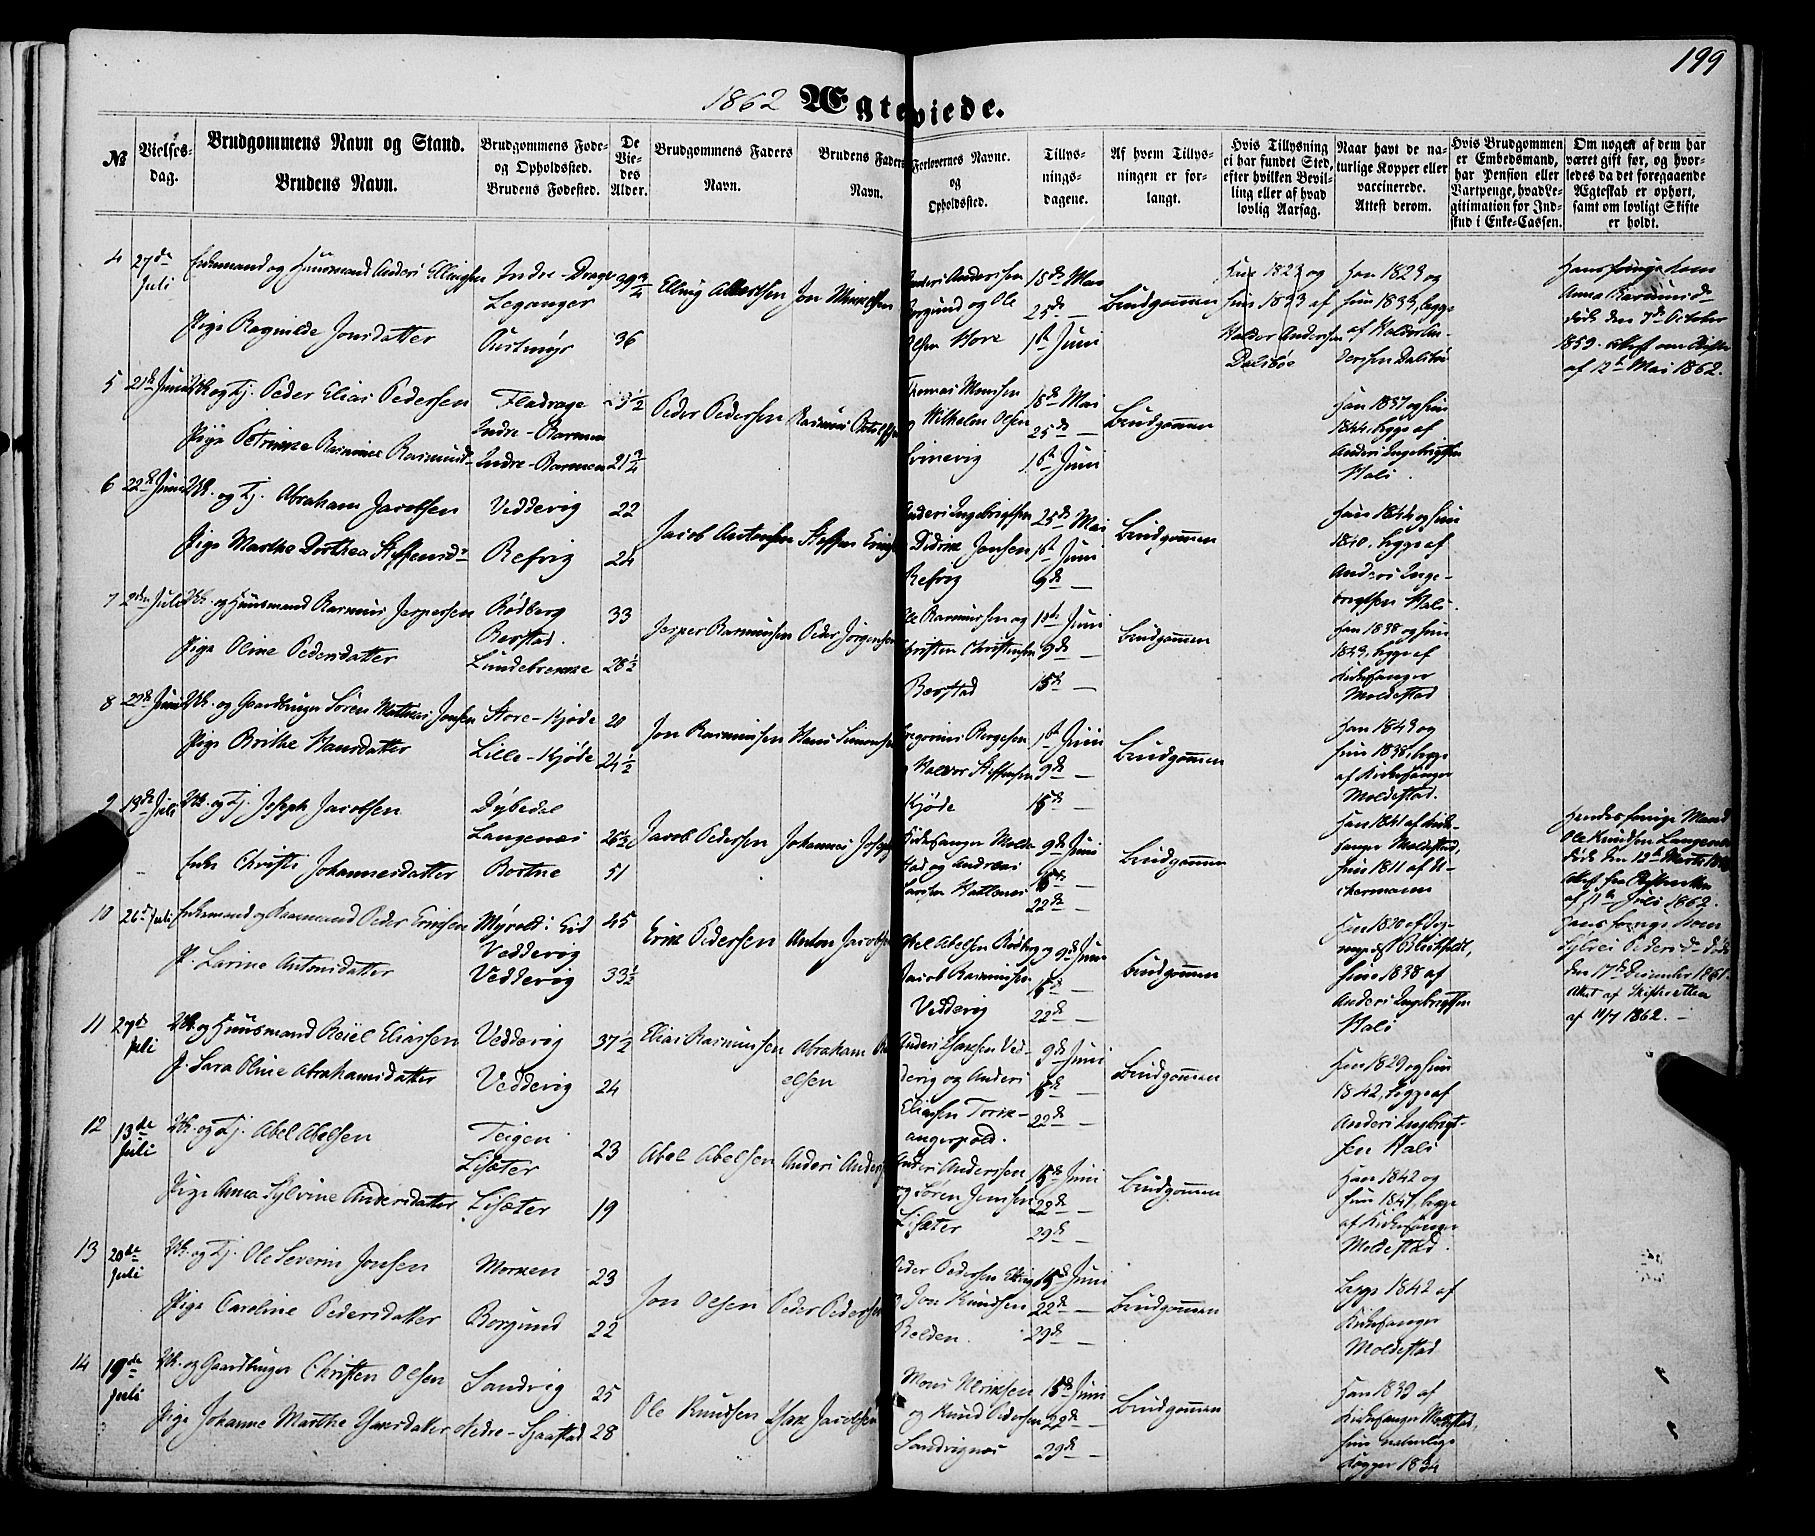 199
1862 Ægteviede.
№
Vielses-
dag.
Brudgommens Navn og Stand.
Brudens Navn.
Brudgommens Føde-
og Opholdssted.
Brudens Fødested.
De
Vie-
des
Alder.
Brudgommens Faders
Navn.
Brudens Faders
Navn.
Forlovernes Navne.
og
Opholdssted.
Tillys-
nings-
dagene.
Af hvem Tillys-
ningen er for-
langt.
Hvis Tillysning
ei har fundet Sted,
efter hvilken Bevil-
ling eller af hvad
lovlig Aarsag.
Naar havt de na-
turlige Kopper eller
vaccinerede.
Attest derom.
Hvis Brudgommen
er Embedsmand,
har Pension eller
Vartpenge, hvad Le-
gitimation for Ind-
skud i Enke-Cassen.
Om nogen af dem har
været gift før, og hvor-
ledes da det foregaaende
Ægteskab er ophørt,
samt om lovligt Skifte
er holdt.
4
27de
Juli
Enkemand og Huusmand Anders Ellingsen
Pige Ragnilde Jonsdatter
Indre-Drage
Leganger
Aurtmyr
39 3/4
36
Elling Albertsen
Jon Mikkelsen
Anders Andersen
Borgund og Ole
Olsen Hove
18de Mai
25de —
1ste Juni
Brudgommen
Han 1823 og
hun 1833 af
Halvor Andersen
Dalsbøe
Han 1823 og
hun 1833, begge
af Halvor An-
dersen Dalsbø
Hans forrige Kone
Anna Rasmusd.
døde den 7de October
1859. Attest om Skifte
af 12te Mai 1862.
5
21de Juni
Uk. og Tj. Peder Elias Pedersen
Pige Petrikke Rasmine Rasmusd.
Fladrage
Indre-Barmen
Indre-Barmen
21 3/4
Peder Pedersen
Rasmus
Thomas Monsen
og Wilhelm Olsen
18de Mai
25de —
1ste Juni
Brudgommen
Han 1837 og hun
1844, begge af
Anders Ingebrigtsen
Hals.
6
22de Juni
Uk. og Tj. Abraham Jacobsen
Pige Marthe Dorthea Steffensd.
Vedderig
Refvig
22
24
Jacob Antonsen
Steffen
Anders Ingebrigtsen
Didrik Jonsen
Refvig
25de Mai
1ste Juni
9de —
Brudgommen
Han 1844 og hun
1840, begge af
Anders Inge-
brigtsen Hals.
7
2den Juli
Uk. og Huusmand Rasmus Jespersen
Pige Oline Pedersdatter
Rødberg
Barstad.
Lundebrekke
33
28 1/2
Jesper Rasmussen
Peder Jørgensen
Ole Rasmussen og
Christen Christensen
Berstad
1ste Juni
9de —
15de —
Brudgommen
Han 1838 og hun
1843, begge af
Kirkesanger
Moldestad
8
29de Juni
Uk. og Gaardbruger Søren Mathias Jonsen
Pige Brithe Hansdatter
Store-Kjøde
Lille-Kjøde
20
24 1/2
Jon Rasmussen
Hans Simonsen
Gregorius Børgesen
og Halvor Steffensen
Kjøde
1ste Juni
9de —
15de —
Brudgommen
Han 1843 og
hun 1838, begge
af Kirkesanger
Moldestad.
9
13de
Juli
Uk. og Tj. Joseph Jacobsen
Enke Christi Johannesdatter
Dybedal
Langenæs
Bortne
26 1/2
51
Jacob Pedersen
Johannes
Kirkesanger Molde-
stad og Andreas
Larsen
9de Juni
15de
22de —
Brudgommen
Han 1841 af Kirke-
sanger Moldestad,
hun 1811 af
Hendes forrige Mand
Ole Knudsen Langenæs
døde den 12te Marts
Attest fra Skifteretten
af 11te Juli 1862.
10
26de Juli
Enkemand og Huusmand Peder Eriksen
P. Larine Antonsdatter
Myrold i Eid
Vedderig
Vedderig
45
33 1/2
Erik Pedersen
Anton Jacobsen
Abel Abelsen Rødberg og
Jacob Rasmussen
Vedderig
9de Juni
15de
22de —
Brudgommen
hun 1838 af
Anders Ingebrigtsen
Hals
Hans forrige Kone
Sylvei Pedersd. døde
den 17de December 1861.
Attest af Skifteretten
af 11/7 1862. —
11
27de
Juli
Uk. og Huusmand Reiel Eliassen
P. Sara Oline Abrahamsdatter
Vedderig
Vedderig
37 1/2
24
Elias Rasmussen
Abraham
elsen
Anders Isaksen Ved-
derig og Anders
Eliassen Torsk-
angerpold.
9de Juni
15de
22de —
Brudgommen
Han 1829 og hun
1842, begge af
Anders Ingebrigt-
sen Hals
12
13de
Juli
Uk. og Tj. Abel Abelsen
Pige Anna Sylvine Andersdatter
Teigen
Lisæter
Lisæter
23
19
Abel Abelsen
Anders
Anders Andersen
og Søren Jensen
Lisæter
15de Juni
22de —
29de
Brudgommen
Han 1842 og
hun 1847, begge
af Kirkesanger
Moldestad.
13
20de
Juli
Uk. og Tj. Ole Severin Jonsen
Pige Caroline Pedersdatter
Morken
Borgund
23
22
Jon Olsen
Peder Pedersen
Peder Pedersen
Jon Knudsen
Belden.
15de Juni
22de —
29de —
Brudgommen
Begge 1842 af
Kirkesanger
Moldestad
14
19de
Juli
Uk. og Gaardbruger Christen Olsen
Pige Johanne Marthe Isaksdatter
Sandvig
Nedre-Sjaastad
25
28
Ole Knudsen
Isak Jacobsen
Mons Henriksen
og Knud Pedersen
Sandvignæs
15de Juni
22de —
29de —
Brudgommen
Han 1839 af
Kirkesanger Moldestad,
hun naturlige
Kopper 1834